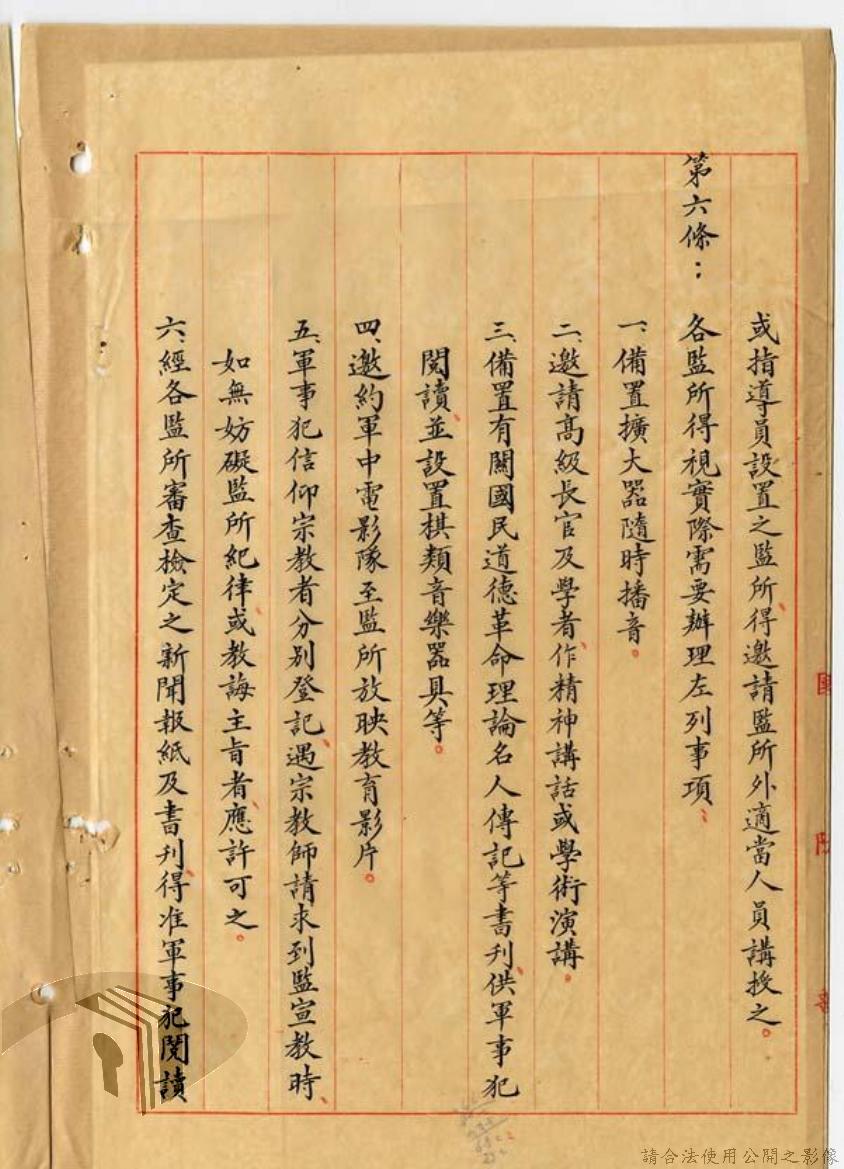 或指導員設置之監所、得邀請監所外適當人員講授之。
第六條：各監所得視實際需要辦理左列事項：
一、備置擴大器隨時播音。
二、邀請高級長官及學者、作精神講話或學術演講。
三、備置有關國民道德革命理論名人傳記等書刊、供軍事犯
閱讀、並設置棋類音樂器具等。
四、邀約軍中電影隊至監所放映教育影片。
五、軍事犯信仰宗教者分別登記、遇宗教師請求到監宣教時、
如無妨礙監所紀律、或教誨主旨者、應許可之。
六、經各監所審查檢定之新聞報紙及書刊、得准軍事犯閱讀
請合法使用公開之影像